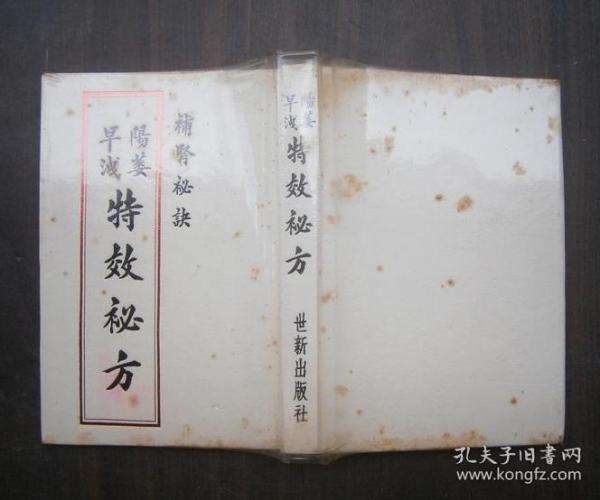 補腎祕訣
陽萎
早洩
特效祕方
陽萎
早洩
特效祕方
世新出版社
孔夫子旧书网
www.kongfz.com